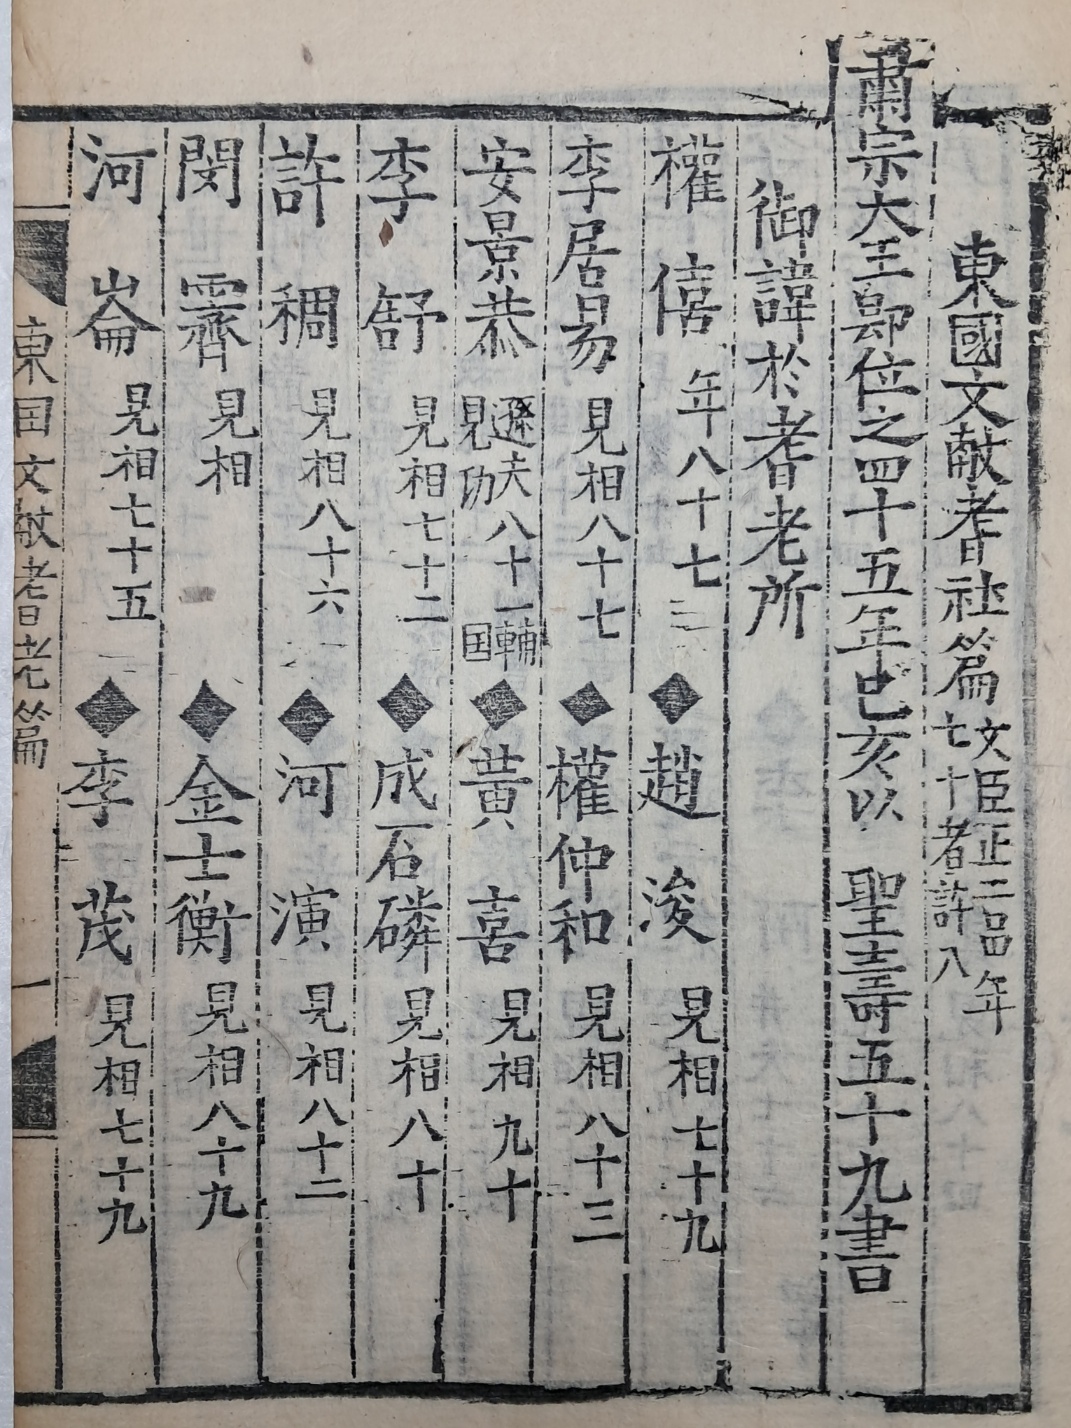 東國文献耆社篇 文臣正二品年七十者許入
肅宗大王即位之四十五年己亥以 聖壽五十九書
御諱於耆老所
權僖 年八十七 ◆趙浚 見相七十九
李居易 見相八十七 ◆權仲和 見相八十三
安景恭 遜夫八十一輔国見功 ◆黃喜 見相九十
李舒 見相七十二 ◆成石磷 見相八十
許稠 見相八十六 ◆河演 見相八十二
閔霽 見相 ◆金士衡 見相八十九
河崙 見相七十五 ◆李茂 見相七十九
東国文献耆老篇 一